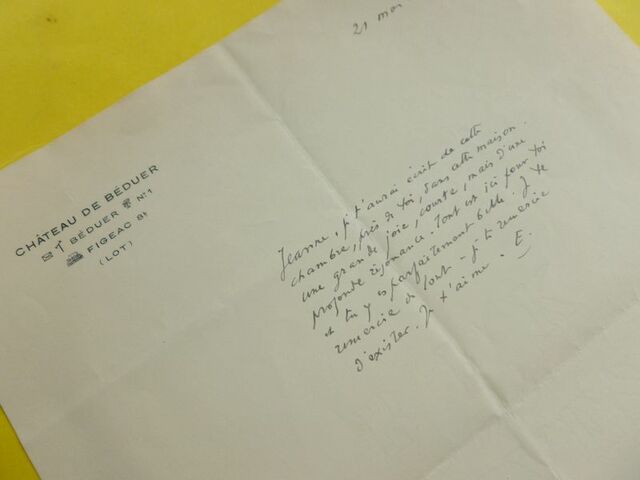 21 mai
CHÂTEAU DE BÉDUER
BÉDUER N° 1
FIGEAC 84
(LOT)
Jeanne, j. t'aurai écrit de cette
chambre, près de toi, dans cette maison.
une grande joie, courte, mais d'une
profonde résonance. Tout est ici pour toi
et tu y es parfaitement belle. Je te
remercie de tout - je te remercie
d'exister. Je t'aime. E.